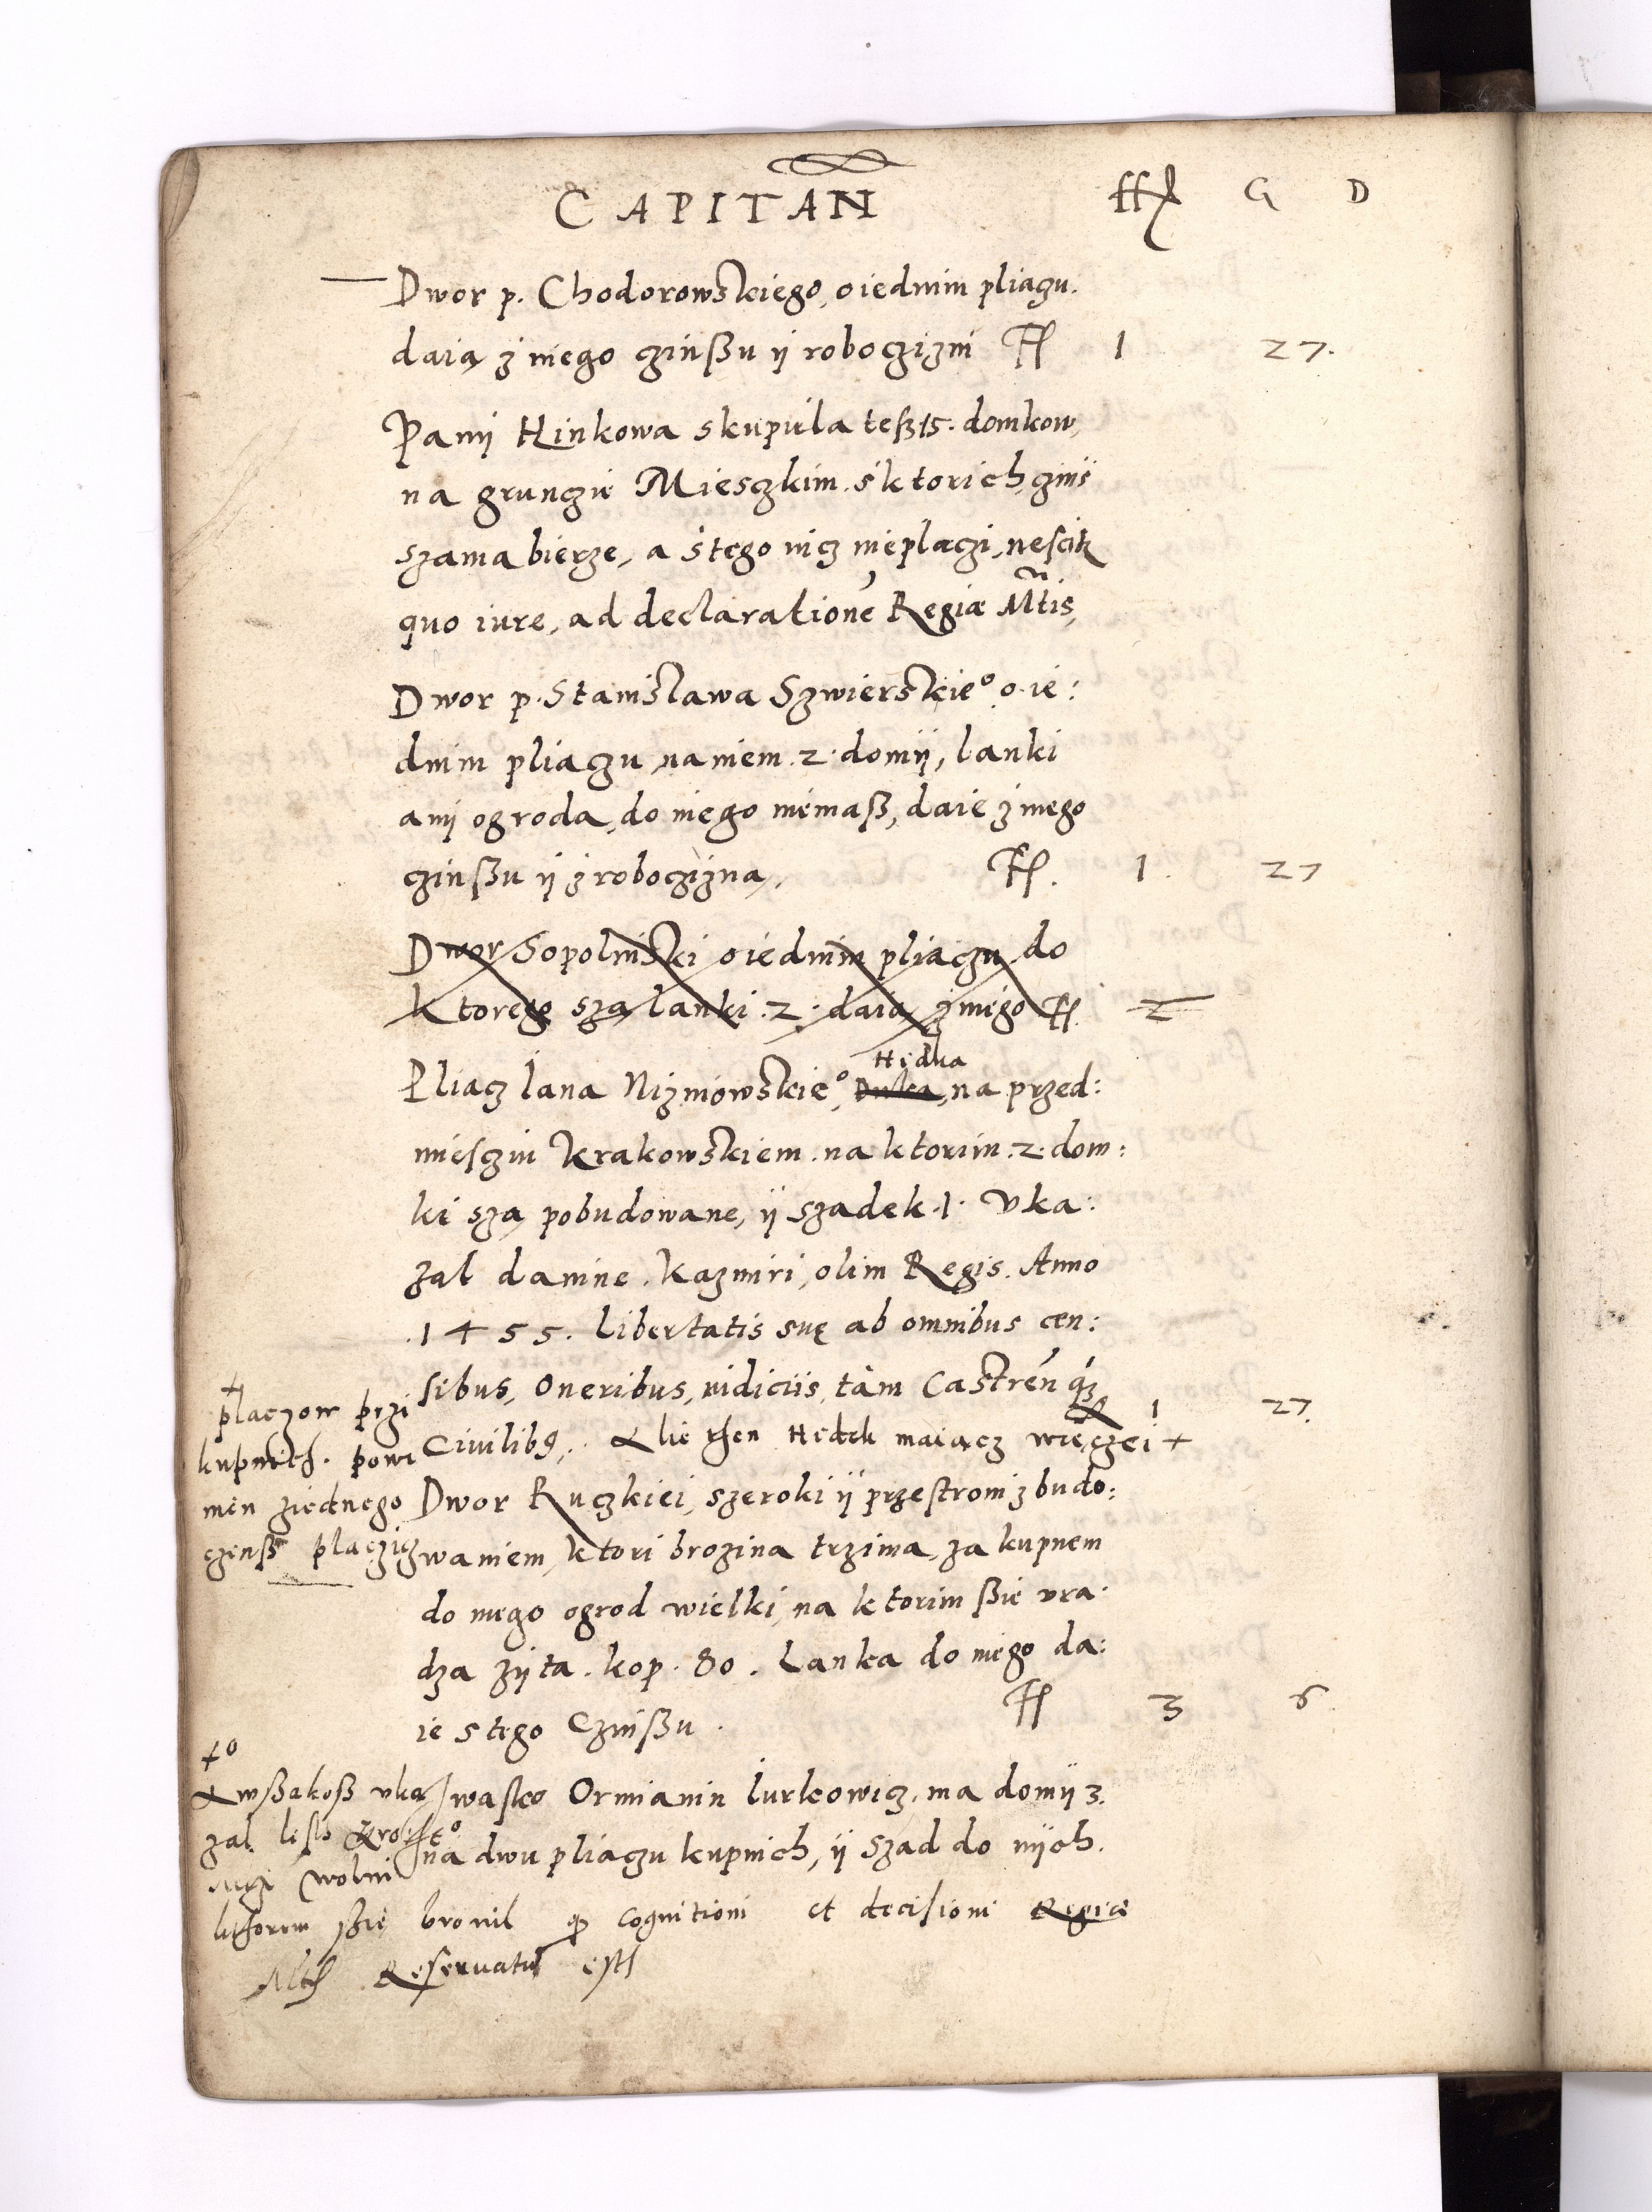 CAPITAN ffl G D
Dwor p. Chodorowskiego, o iednim pliaczu.
daią z niego czinßu ÿ roboczizni Fl 1 27.
Pani Hinkowa skupiła teß 15. domkow,
na grunczie Miesczkim, s ktorich czinß
szama bierze, a s tego nicz nie placzi, nescitur
quo iure, ad declarationē Regiæ Mtis,
Dwor p. Stanisława Szwierskie° o ie:
dnim pliaczu, na niem 2. domÿ, lanki
ani ogroda, do niego niemaß, daie z niego
czinßu ÿ z roboczizna, Fl. 1. 27
Dwor Sopolinski o iednim pliaczu, do
ktorego szą lanki .2. daią z niego Fl. 2
Hedka
Pliacz Iana Nizniowskie°, Duka, na przed:
miesciu Krakowskiem, na ktorim .2. dom:
ki szą pobudowane, ÿ szadek .1. Uka:
zal danine, Kazmiri, olim Regis. Anno
.1455. libertatis suę ab omnibus cen:
sibus, oneribus, iudiciis, tàm Castreń q́z 1 27.
Civilibq, Alie then Hedek maiącz więczei +
+ placzow przi
kupnich. powi
nien ziednego
czinß placzicz
Dwor Ruczkiei, szeroki ÿ przestroni z budo:
waniem, ktori brozina trzima, za kupnem
do niego ogrod wielki, na ktorim ßie ura:
dza zÿta. kop. 80. Lanka do niego da:
ie s tego Czinßu. Fl 3 6
Iwasko Ormianin Iurkowicz, ma domÿ 3.
na dwu pliaczu kupnich, ÿ szad do nÿch.
+°
A wßakoß uka
zal listo
wolni
kthorem ßię bronil cognitioni et decisioni Regiæ
Mtis Reservatum est